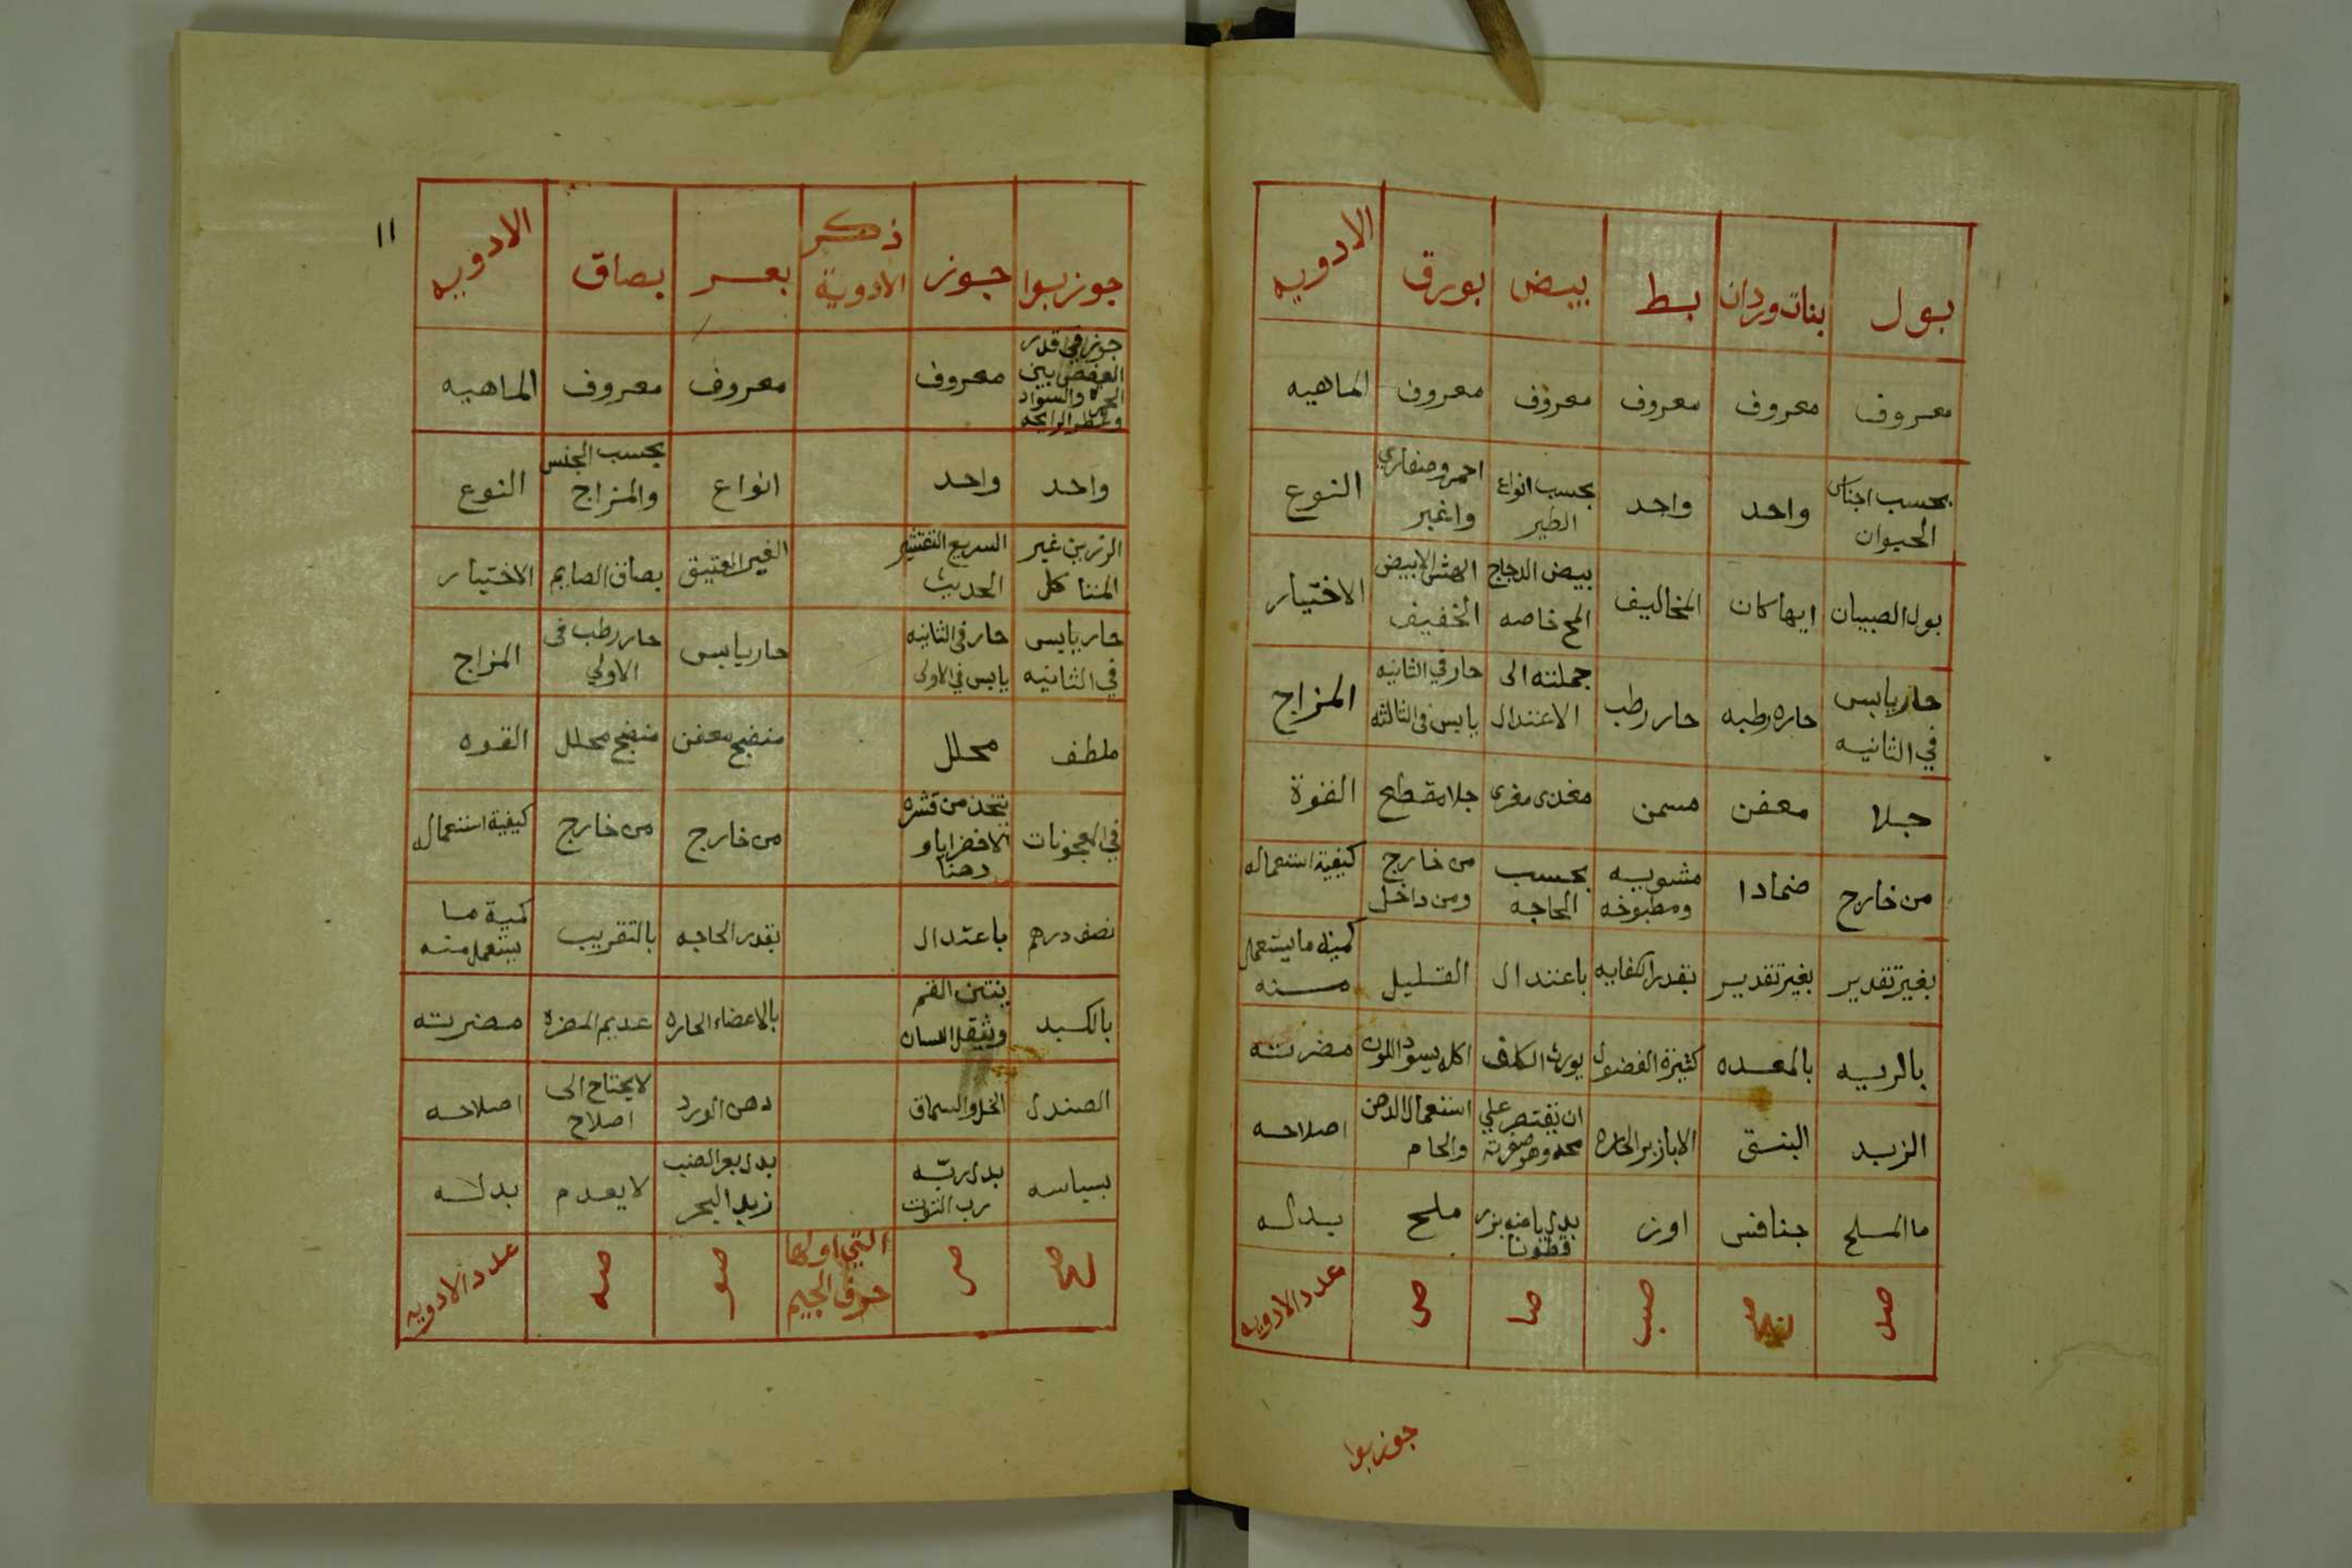 بول | بنات وردان | بط | بيض | بورق | الادويه
معروف | معروف | معروف | معروف | معروف | الماهيه
بحسب اجناس الحيوان | واحد | واحد | بحسب انواع الطير | احمر و واغبر | النوع
بول الصبيان | ايها كان | المخاليف | بيض الدجاج المح خاصه | الهش الابيض الخفيف | الاختيار
حار يابس في الثانيه | حاره رطبه | حار رطب | جملته الى الاعتدال | حار في الثانيه يابس في الثالثه | المزاج
جلا | معفن | مسمن | مغذى مغرى | جلا مقطع | القوة
من خارج | ضمادا | مشويه ومطبوخه | بحسب الحاجه | من خارج ومن داخل | كيفية استعماله
بغير تقدير | بغير تقدير | بقدر الكفايه | باعتدال | القليل | كمية ما يستعمل منه
بالريه | بالمعده | كثيرة الفضول | يورث الكلف | اكله يسود اللون | مضرته
الزبد | البنسق | الابازير الحاره | ان يقتصر على محه وهو صفرته | استعمال الدهن والحام | اصلاحه
ما الملح | خنافس | اوز | بدل بياضه بزر قطونا | ملح | بدله
صد | صج | صب | صا | ص | عدد الادويه
جوز بوا
١١
جوز بوا | جوز | ذكر الادوية | بعر | بصاق | الادويه
جوز في قدر العفص بين الحمرة والسواد وعطر الرايحه | معروف | معروف | معروف | الماهيه
واحد | واحد | انواع | بحسب الجنس والمزاج | النوع
الرزين غير المتاكل | السريع التقشير الحديث | الغير العتيق | بصاق الصايم | الاختيار
حار يابس في الثانيه | حار في الثانيه يابس في الاولى | حار يابس | حار رطب فى الاولي | المزاج
ملطف | محلل | منضج معفن | منضج محلل | القوه
في المعجونات | يتخذ من قشره الاخضر ربا و دهنا | من خارج | من خارج | كيفية استعماله
نصف درهم | باعتدال | بقدر الحاجه | بالتقريب | كمية ما يستعمل منه
بالكبد | ينتن الفم ويثقل اللسان | بالاعضاء الحاره | عديم المضره | مضرته
الصندل | الخل والسماق | دهن الورد | لا يحتاج الى اصلاح | اصلاحه
بسباسه | بدل ربه رب التوت | بدل بعر الضب زبد البحر | لا يعدم | بدله
صح | صز | التي اولها حرف الجيم | صو | صه | عدد الادويه